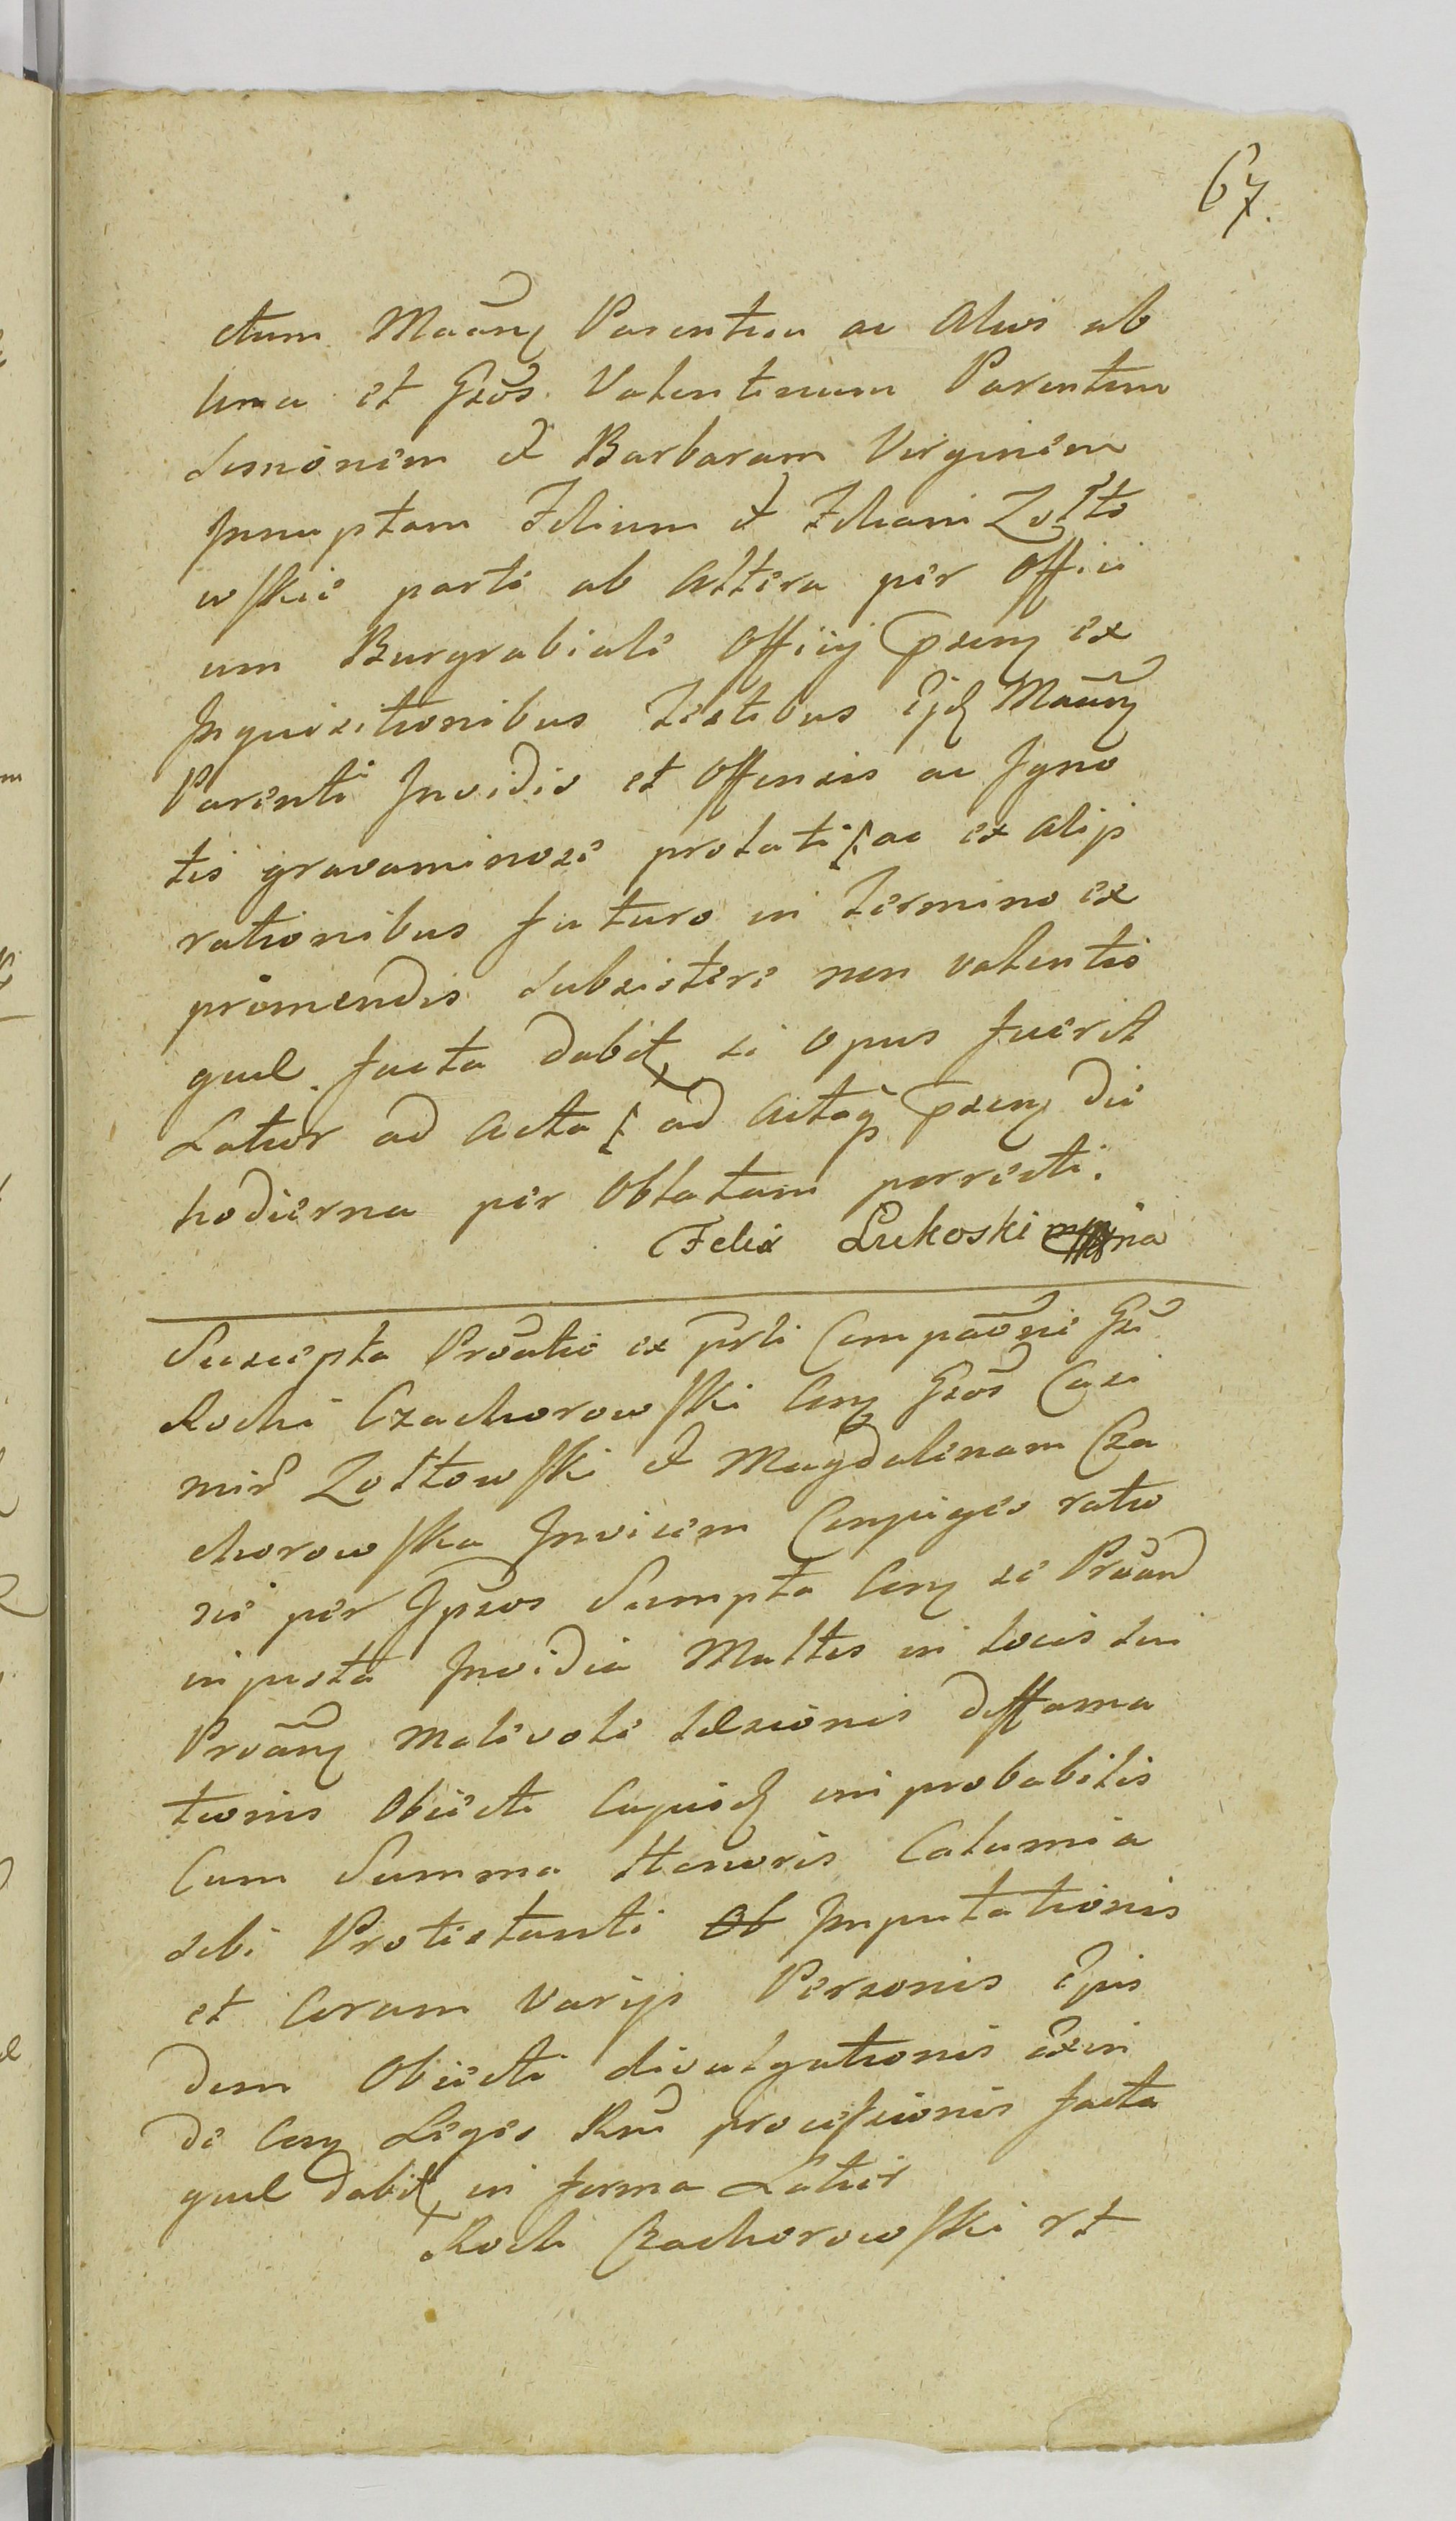 67.
ctum Maãnꝫ Parentem ac Alios ab
una et Gsos. Valentinum Parentem
Simonem & Barbaram Virginem
Jnnuptam Filium & Filiam Zołto
wskie parte ab Altera per Offici
um Burgrabiale Officij pnꝫ ex
Jnquisitionibus Testibus Ejꝫ Maãnꝫ
Parenti Jnvidis et Offensis ac Jgno
tis gravaminose prolati ac ex alijs
rationibus futuro in Termino ex
promendis Subsistere non valentis
quæ facta dabit si opus fuerit
Latior ad Acta ad Actaq pnꝫ die
hodierna per Oblatam porrecti.
Felix Lukoski mpia
Suscepta Prõtatio ex prli Comparõne Gsi
Rochi Czachorowski Conꝫ Gsos Casi
mirũ Zołtowski & Magdalenam Cza
chorowska Jnvicem Conjuges ratio
ne per Jpsos Sumpta Conꝫ se Prõtand
injusta Jnvidia Multis in locis sui
Prõtanꝫ Malevole læsionis deffama
tionis Obiecti Cujusdꝫ improbabilis
Cum Summa Honoris Calumia
sibi Protestanti Ob Jmputationis
et Coram Varijs Personis Ejus
dem Obiecti divulgationis exin
de Conꝫ Leges Rni processionis facta
quæ dabit in forma Latior
Roch Czachorowski rt